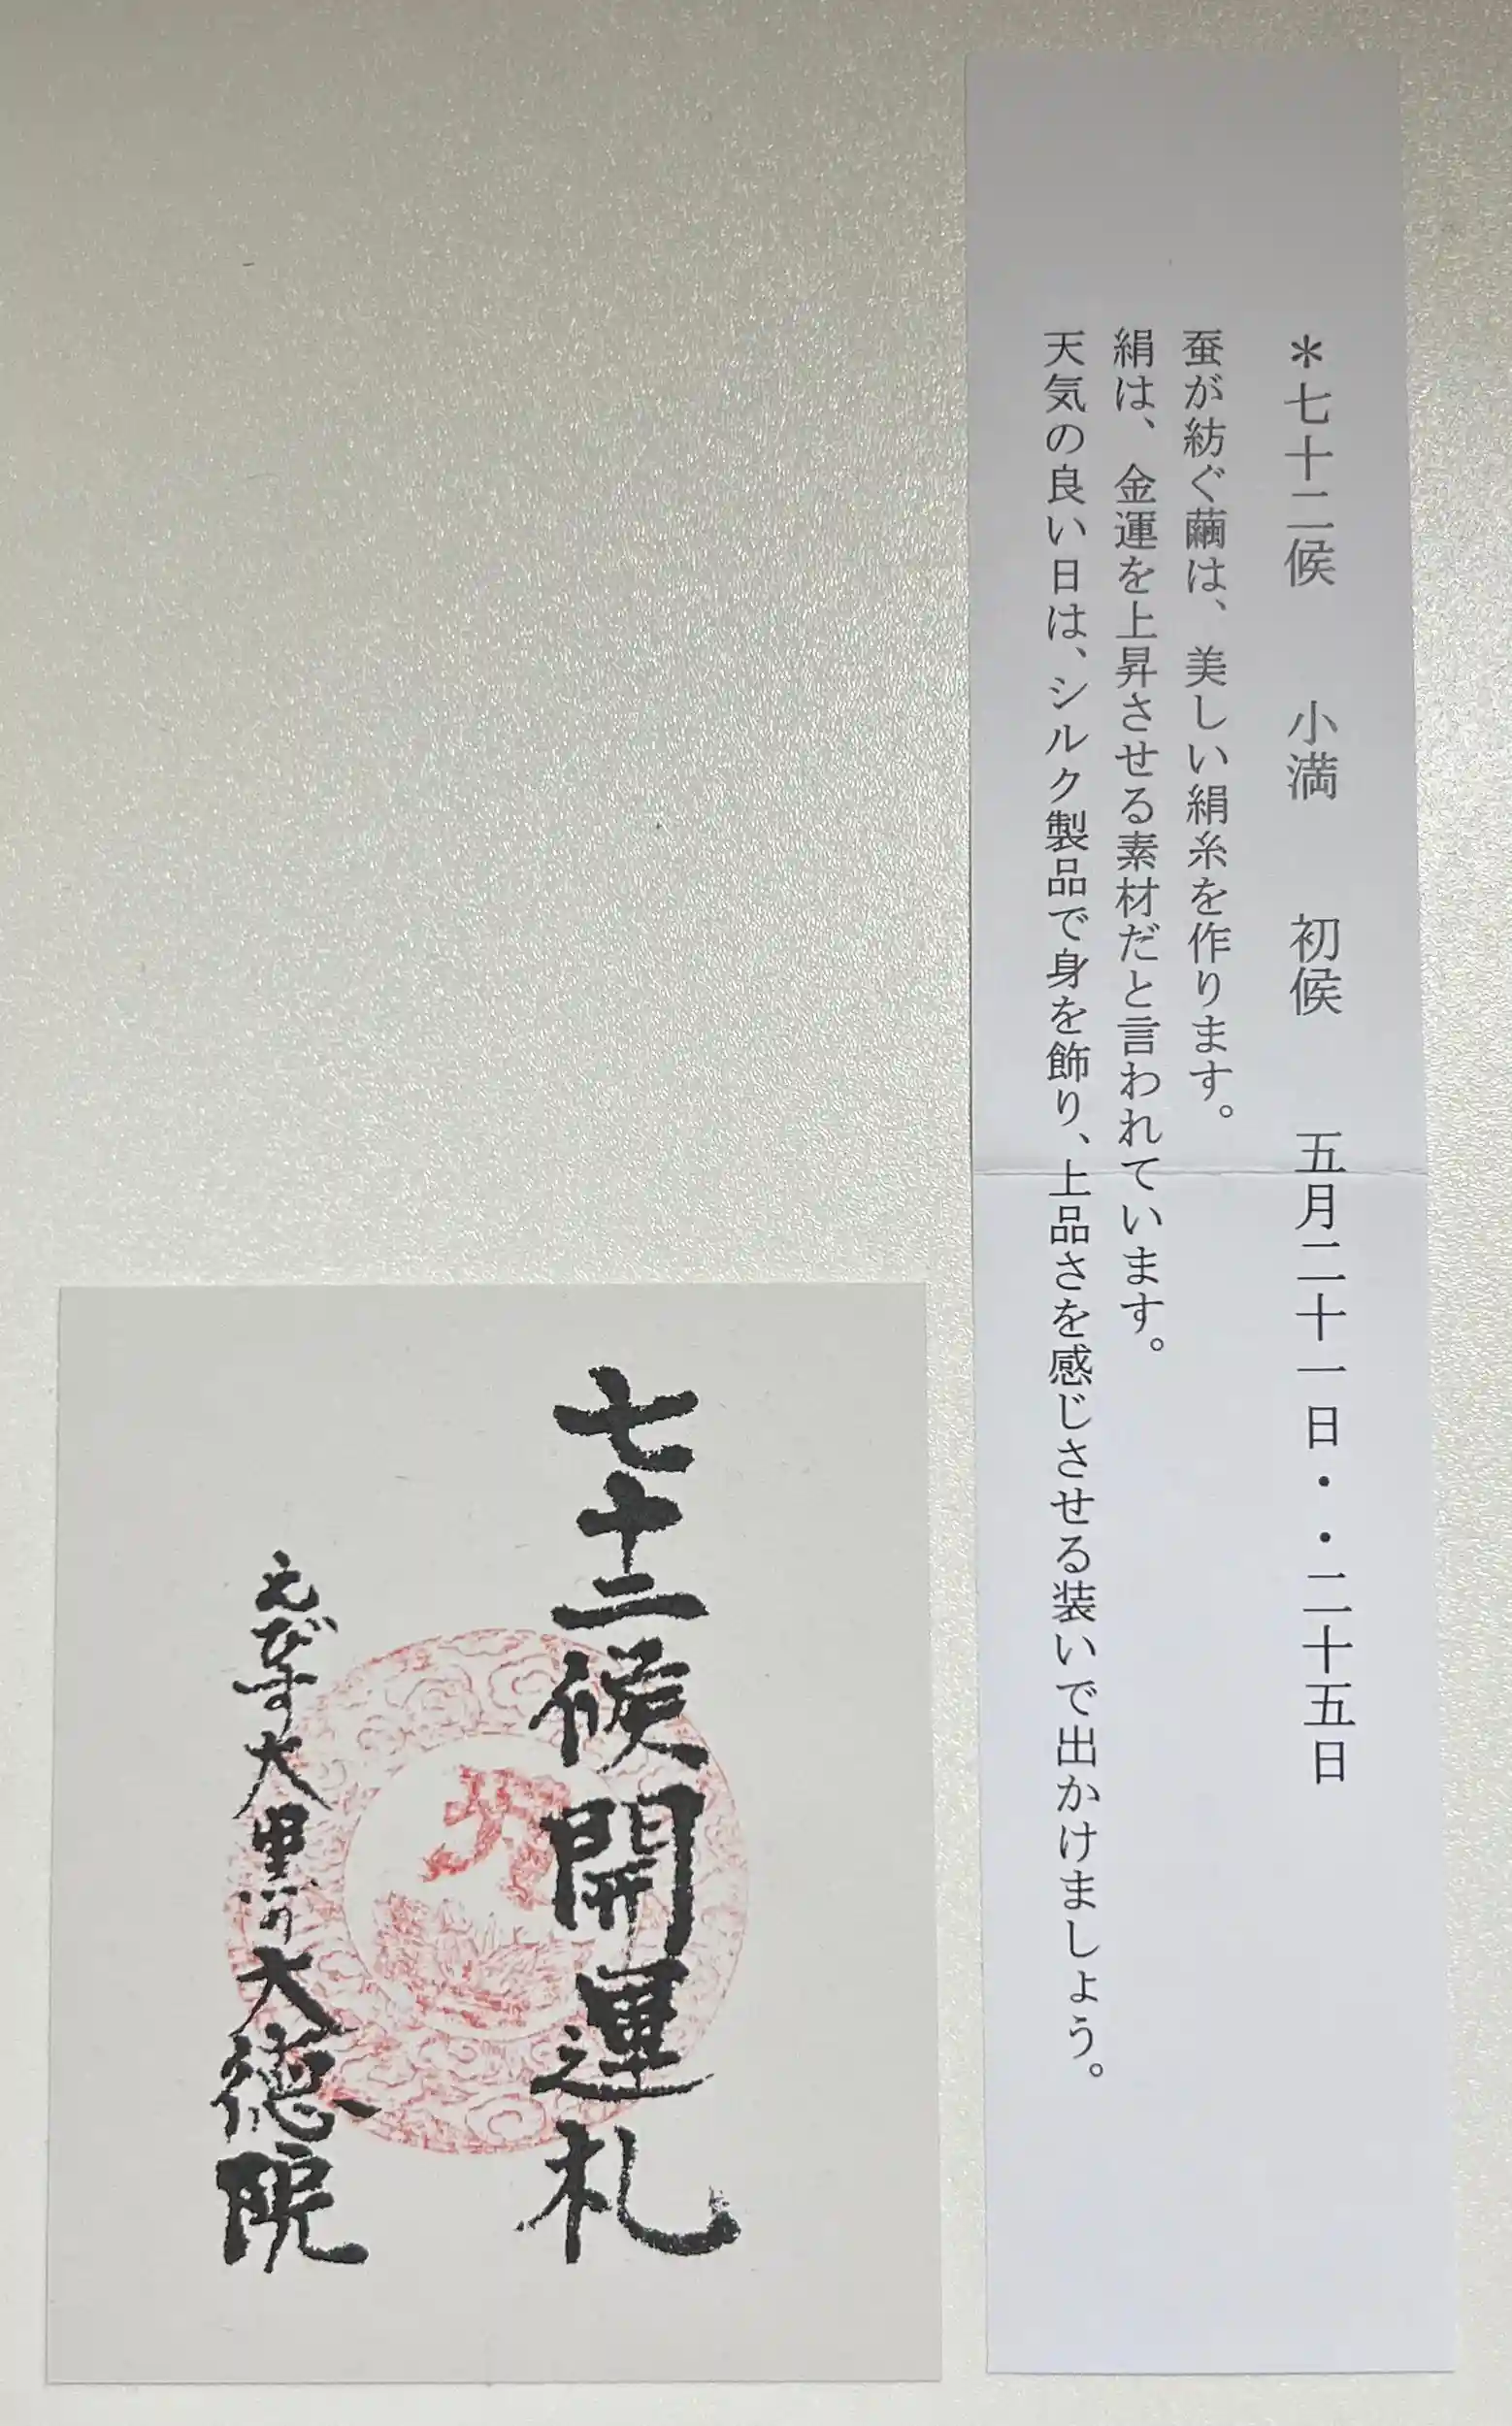 ＊七十二候　小満　初候　五月二十一日・・二十五日
蚕が紡ぐ繭は、美しい絹糸を作ります。
絹は、金運を上昇させる素材だと言われています。
天気の良い日は、シルク製品で身を飾り、上品さを感じさせる装いで出かけましょう。
七十二候開運札
えびす大黒の大徳院